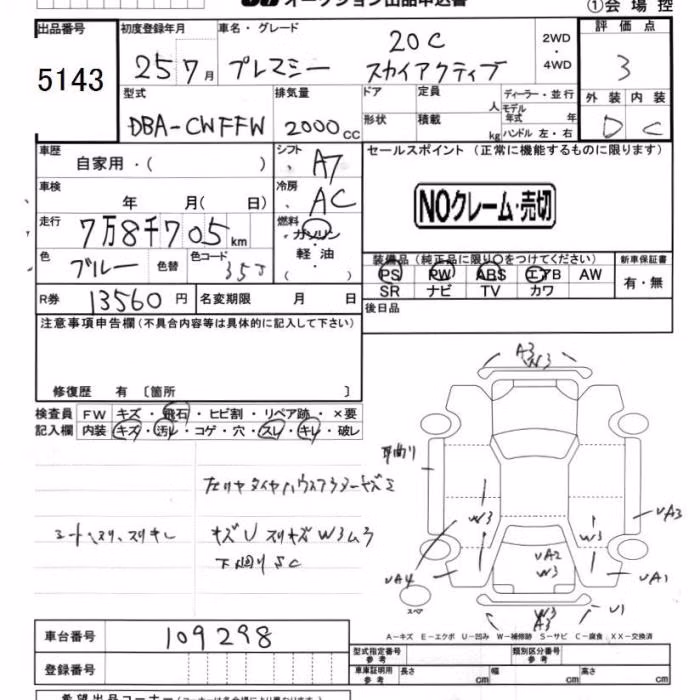 オークション出品申込書
①会場控
出品番号 初度登録年月 車名・グレード 評価点
5143 25 7月 プレマシー 20C スカイアクティブ 2WD・4WD 3
型式 排気量 ドア 定員 人 ディーラー・並行 外装 内装
DBA-CWFFW 2000cc 形状 積載 kg モデル年式 年 ハンドル 左・右 D C
車歴 自家用・( ) シフト AT セールスポイント (正常に機能するものに限ります)
車検 年 月( 日) 冷房 AC NOクレーム・売切
走行 7万8千705km 燃料 ガソリン
色 ブルー 色替 色コード 35J 軽油・( )
装備品 (純正品に限り〇をつけてください) 新車保証書
PS PW ABS エアB AW 有・無
SR ナビ TV カワ
R券 13560円 名変期限 月 日 後日品
注意事項申告欄 (不具合内容等は具体的に記入して下さい)
修復歴 有 〔箇所 〕
検査員 FW キズ・飛石・ヒビ割・リペア跡・×要
記入欄 内装 キズ・汚レ・コゲ・穴・スレ・キレ・破レ
シートヘタリ、スリキレ
キズU スリキズ W3ムラ
下廻りSC
A3 W3
耳曲り
W3 W3 UA3
UA2
W3
UA4 UA1
スペア W3 A3 U1
A-キズ E-エクボ U-凹み W-補修跡 S-サビ C-腐食 XX-交換済
車台番号 109298 型式指定番号 参考 類別区分番号 参考
登録番号 車庫証明用 参考 長さ cm 幅 cm 高さ cm
希望出品コーナー